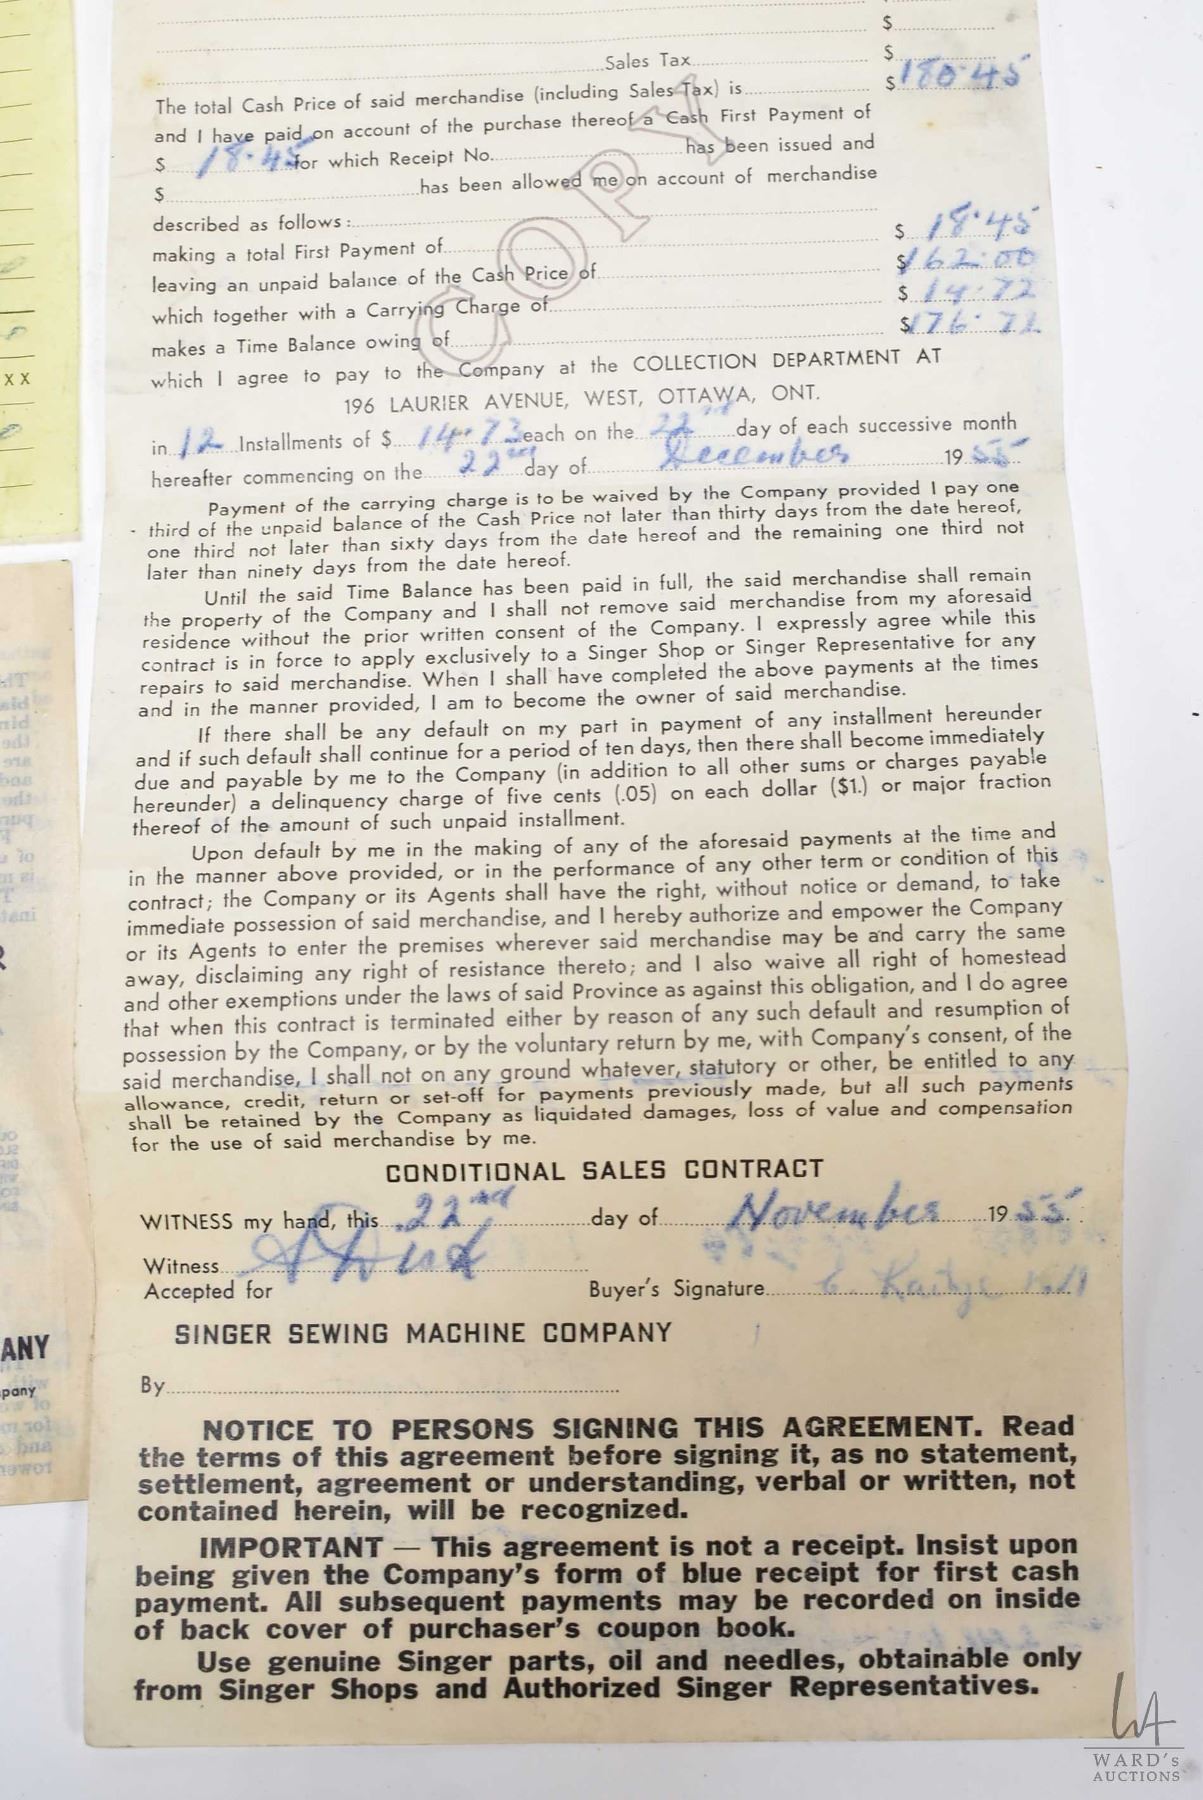 $
Sales Tax $
The total Cash Price of said merchandise (including Sales Tax) is $ 180.45
and I have paid on account of the purchase thereof a Cash First Payment of
$ 18.45 for which Receipt No. has been issued and
$ has been allowed me on account of merchandise
described as follows:
making a total First Payment of $ 18.45
leaving an unpaid balance of the Cash Price of $ 162.00
which together with a Carrying Charge of $ 14.72
makes a Time Balance owing of $ 176.72
which I agree to pay to the Company at the COLLECTION DEPARTMENT AT
196 LAURIER AVENUE, WEST, OTTAWA, ONT.
in 12 Installments of $ 14.73 each on the 22nd day of each successive month
hereafter commencing on the 22nd day of December 1955
Payment of the carrying charge is to be waived by the Company provided I pay one
third of the unpaid balance of the Cash Price not later than thirty days from the date hereof,
one third not later than sixty days from the date hereof and the remaining one third not
later than ninety days from the date hereof.
Until the said Time Balance has been paid in full, the said merchandise shall remain
the property of the Company and I shall not remove said merchandise from my aforesaid
residence without the prior written consent of the Company. I expressly agree while this
contract is in force to apply exclusively to a Singer Shop or Singer Representative for any
repairs to said merchandise. When I shall have completed the above payments at the times
and in the manner provided, I am to become the owner of said merchandise.
If there shall be any default on my part in payment of any installment hereunder
and if such default shall continue for a period of ten days, then there shall become immediately
due and payable by me to the Company (in addition to all other sums or charges payable
hereunder) a delinquency charge of five cents (.05) on each dollar ($1.) or major fraction
thereof of the amount of such unpaid installment.
Upon default by me in the making of any of the aforesaid payments at the time and
in the manner above provided, or in the performance of any other term or condition of this
contract; the Company or its Agents shall have the right, without notice or demand, to take
immediate possession of said merchandise, and I hereby authorize and empower the Company
or its Agents to enter the premises wherever said merchandise may be and carry the same
away, disclaiming any right of resistance thereto; and I also waive all right of homestead
and other exemptions under the laws of said Province as against this obligation, and I do agree
that when this contract is terminated either by reason of any such default and resumption of
possession by the Company, or by the voluntary return by me, with Company's consent, of the
said merchandise, I shall not on any ground whatever, statutory or other, be entitled to any
allowance, credit, return or set-off for payments previously made, but all such payments
shall be retained by the Company as liquidated damages, loss of value and compensation
for the use of said merchandise by me.
CONDITIONAL SALES CONTRACT
WITNESS my hand, this 22nd day of November 1955
Witness
Accepted for Buyer's Signature
SINGER SEWING MACHINE COMPANY
By
NOTICE TO PERSONS SIGNING THIS AGREEMENT. Read
the terms of this agreement before signing it, as no statement,
settlement, agreement or understanding, verbal or written, not
contained herein, will be recognized.
IMPORTANT — This agreement is not a receipt. Insist upon
being given the Company's form of blue receipt for first cash
payment. All subsequent payments may be recorded on inside
of back cover of purchaser's coupon book.
Use genuine Singer parts, oil and needles, obtainable only
from Singer Shops and Authorized Singer Representatives.
COPY
XX
ANY
pany
WA
WARD's
AUCTIONS